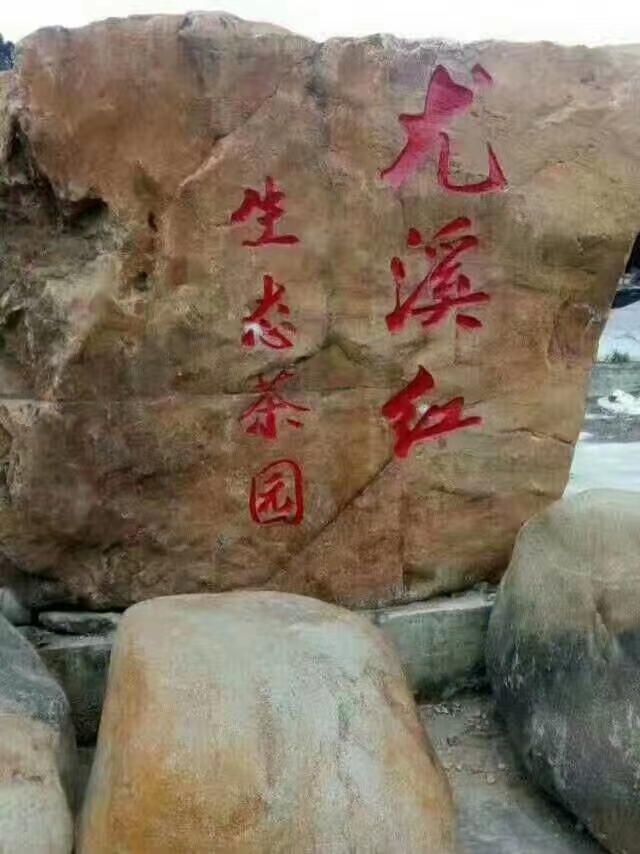 尤溪红
生态茶园